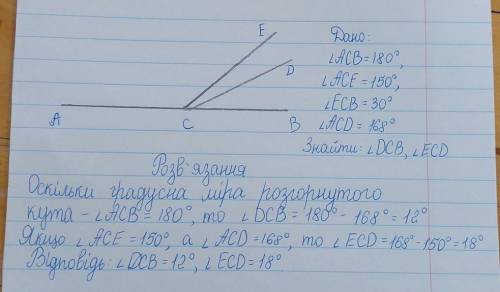 E
D
A
C
B
Дано:
∠ACB=180°,
∠ACE=150°,
∠ECB=30°
∠ACD=168°
Знайти: ∠DCB, ∠ECD
Розв'язання
Оскільки градусна міра розгорнутого
кута - ∠ACB = 180°, то ∠DCB = 180° - 168° = 12°
Якщо ∠ACE = 150°, а ∠ACD = 168°, то ∠ECD = 168° - 150° = 18°
Відповідь: ∠DCB = 12°, ∠ECD = 18°